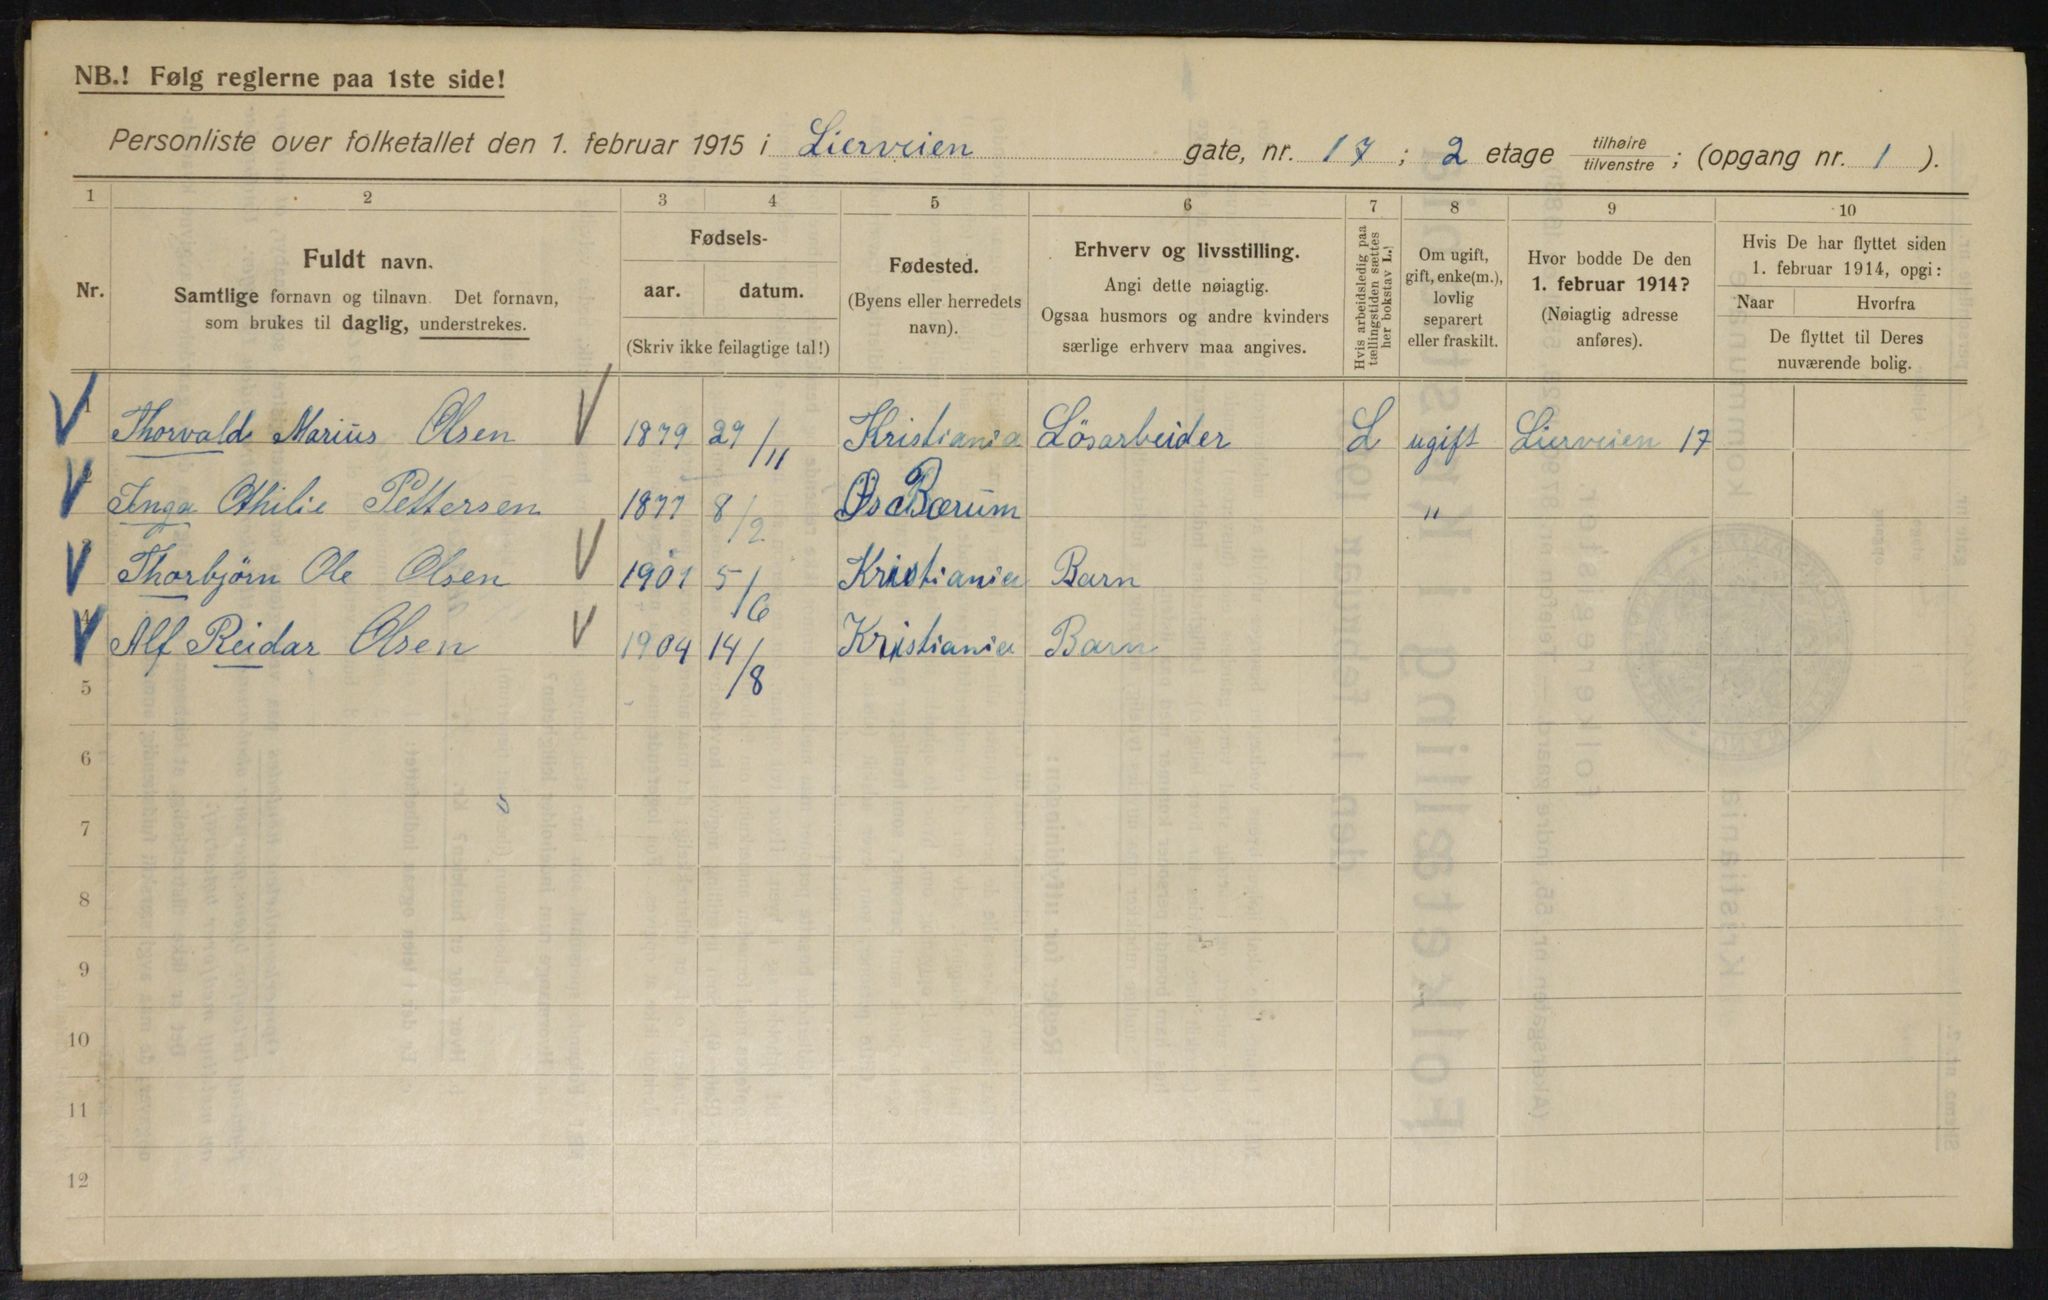 NB.! Følg reglerne paa 1ste side!
Personliste over folketallet den 1. februar 1915 i Lierveien gate, nr. 17 ; 2 etage tilhøire tilvenstre ; (opgang nr. 1 ).
1 2 3 4 5 6 7 8 9 10
Nr.
Fuldt navn.
Samtlige fornavn og tilnavn. Det fornavn,
som brukes til daglig, understrekes.
Fødsels-
aar. datum.
(Skriv ikke feilagtige tal!)
Fødested.
(Byens eller herredets
navn).
Erhverv og livsstilling.
Angi dette nøiagtig.
Ogsaa husmors og andre kvinders
særlige erhverv maa angives.
Hvis arbeidsledig paa
tællingstiden sættes
her bokstav L.!
Om ugift,
gift, enke(m.),
lovlig
separert
eller fraskilt.
Hvor bodde De den
1. februar 1914?
(Nøiagtig adresse
anføres).
Hvis De har flyttet siden
1. februar 1914, opgi:
Naar Hvorfra
De flyttet til Deres
nuværende bolig.
1 Thorvald Marius Olsen 1879 29/11 Kristiania Lösarbeider L ugift Lierveien 17
2 Inga Othilie Pettersen 1877 8/2 Bærum "
3 Thorbjörn Ole Olsen 1901 5/6 Kristiania Barn
4 Alf Reidar Olsen 1904 14/8 Kristiania Barn
5
6
7
8
9
10
11
12